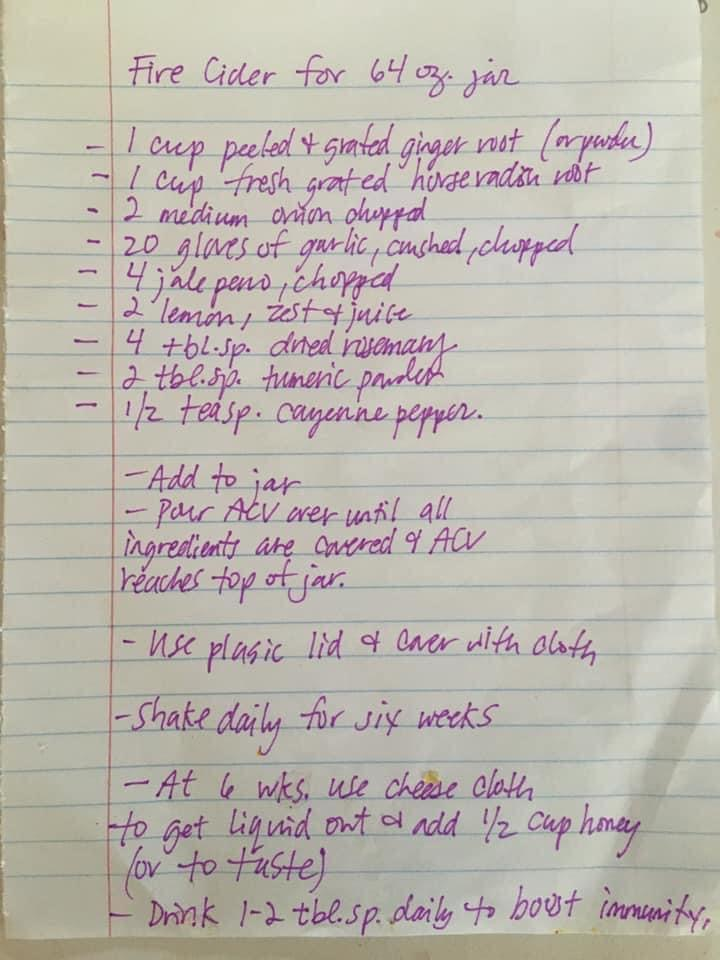 Fire Cider for 64 oz. jar
- 1 cup peeled & grated ginger root (or powder)
- 1 cup fresh grated horseradish root
- 2 medium onion chopped
- 20 gloves of garlic, crushed, chopped
- 4 jalepeno, chopped
- 2 lemon, zest & juice
- 4 tbl.sp. dried rosemary
- 2 tbl.sp. tumeric powder
- 1/2 teasp. cayenne pepper.
- Add to jar
- Pour ACV over until all
ingredients are covered & ACV
reaches top of jar.
- Use plasic lid & cover with cloth
- Shake daily for six weeks
- At 6 wks. use cheese cloth
to get liquid out & add 1/2 cup honey
(or to taste)
- Drink 1-2 tbl.sp. daily to boost immunity.